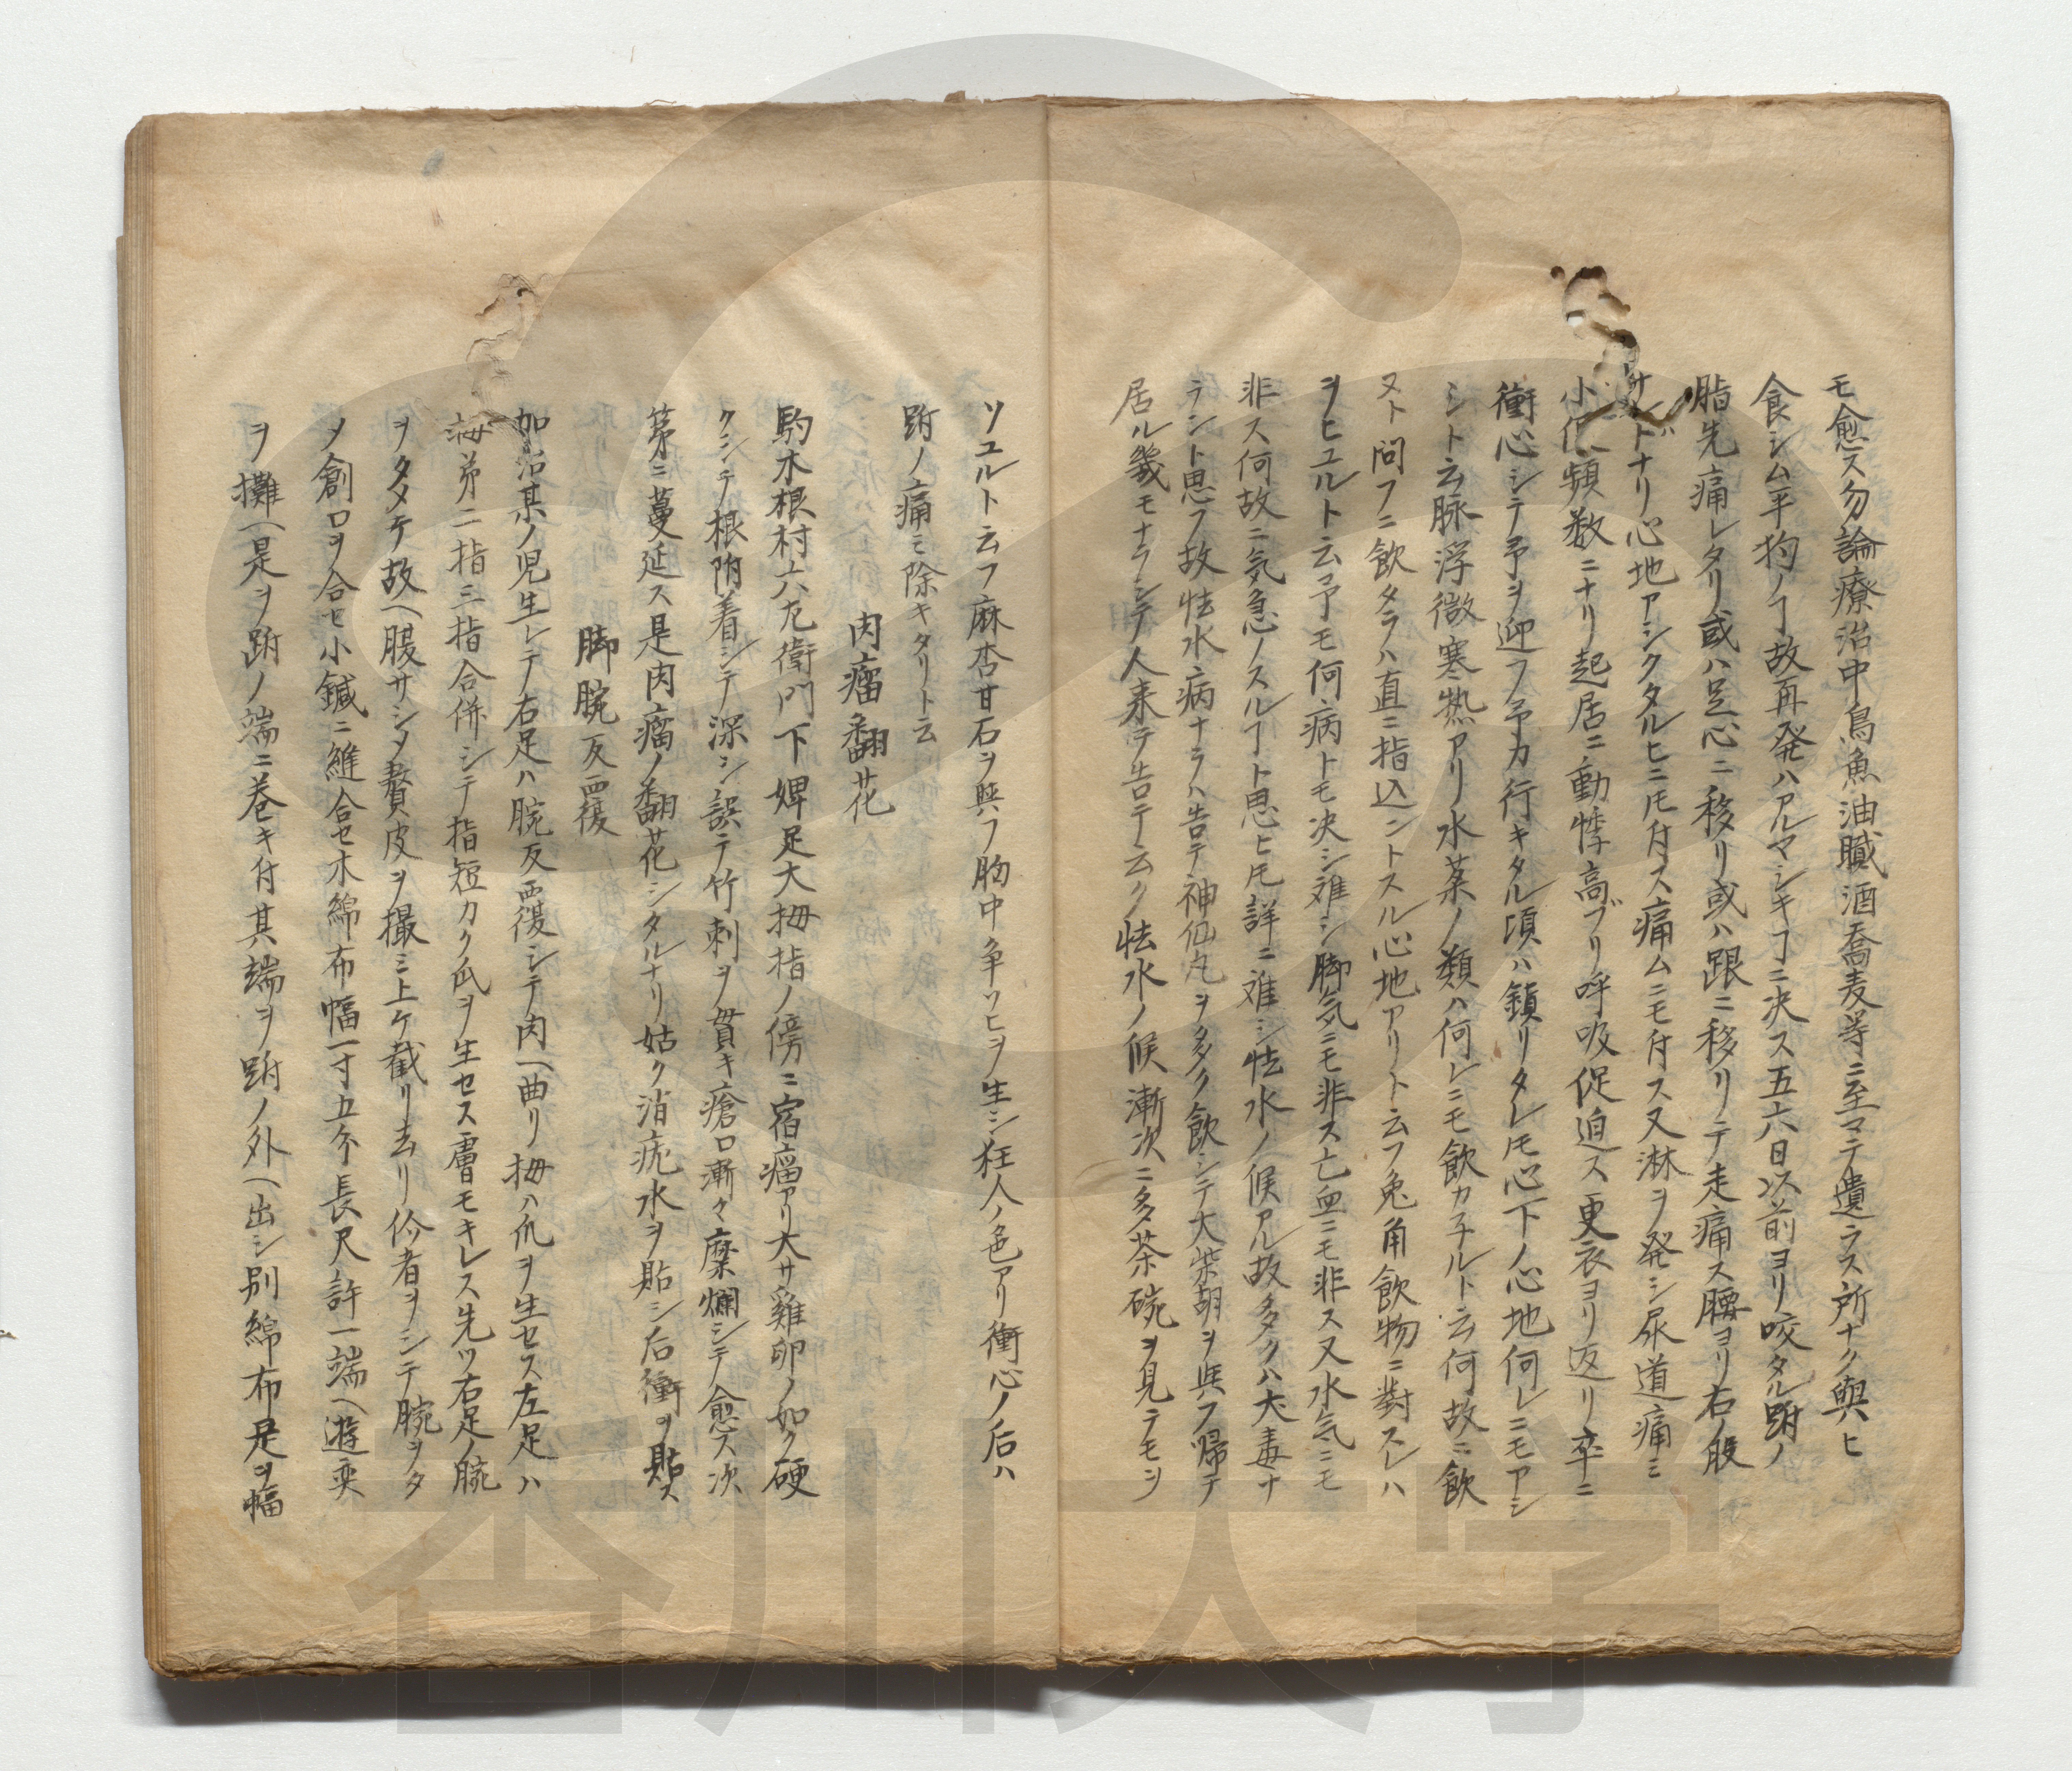 モ愈ス勿論療治中鳥魚油膩酒喬麦等ニ至マテ遺ラス所ナク與ヒ
食シム平狗ノヿ故再発ハアルマシキヿニ决ス五六日以前ヨリ咬タル跗ノ
脂先痛レタリ或ハ足心ニ移リ或ハ跟ニ移リテ走痛ス腰ヨリ右ノ股
ナリ心地アシクタルヒニモ付ス痛ムニモ付ス又淋ヲ発シ尿道痛ミ
小便頻数ニナリ起居ニ動悸高ブリ呼吸促迫ス更衣ヨリ返リ卒ニ
衝心シテ予ヲ迎フ予カ行キタル頃ハ鎮リタレ𪜈心下ノ心地何レニモアシ
シト云脉浮微寒热アリ水菓ノ類ハ何レニモ飲カ子ルト云何故ニ飲
ヌト問フニ飲タラハ直ニ指込ントスル心地アリト云フ兔角飲物ニ對スレハ
ヲヒユルト云予モ何病トモ决シ难シ脚気ニモ非ス亡血ニモ非ス又水気ニモ
非ス何故ニ気急ノスルヿト思ヒ𪜈詳ニ难シ怯水ノ候アル故多クハ犬毒ナ
ラント思フ故怯水病ナラハ告テ神仙丸ヲ多ク飲シテ大柴胡ヲ與フ帰テ
居ル幾モナラシテ人来テ告テ云ク怯水ノ候漸次ニ多茶碗ヲ見テモヲ
ソユルト云フ麻杏甘石ヲ與フ胸中争ソヒヲ生シ狂人ノ色アリ衝心ノ后ハ
跗ノ痛ミ除キタリト云
肉瘤翻花
駒木根村六左衛門下婢足大拇指ノ傍ニ宿瘤アリ大サ雞卵ノ如ク硬
クシテ根附着シテ深シ誤テ竹刺ヲ貫キ瘡口漸々糜爛シテ愈ス次
第ニ蔓延ス是肉瘤ノ翻花シタルナリ姑ク消疣水ヲ貼シ后衝ヲ貼ス
脚腕反覆
加治某ノ児生レテ右足ハ腕反覆シテ内へ曲リ拇ハ爪ヲ生セス左足ハ
拇弟二指三指合併シテ指短カク爪ヲ生セス膚モキレス先ツ右足ノ腕
ヲタメテ故へ腹サシメ贅皮ヲ撮ミ上ケ截リ去リ伱者ヲシテ腕ヲタ
メ創口ヲ合セ小鍼ニ縫合セ木綿布幅一寸五分長尺許一端へ遊奕
ヲ攤へ是ヲ跗ノ端ニ巻キ付其端ヲ跗ノ外へ出シ別綿布是ヲ幅